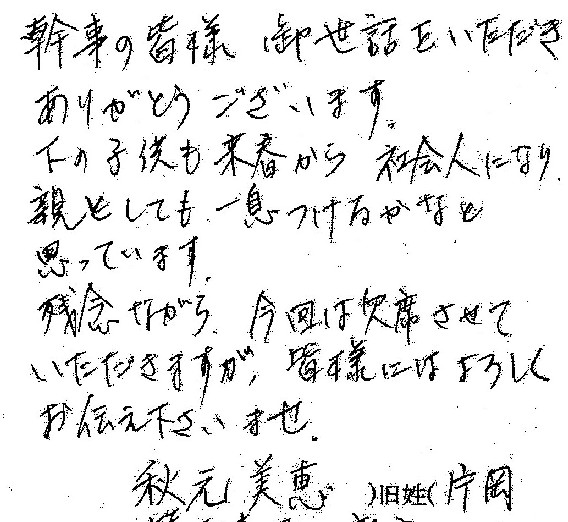 幹事の皆様 御世話をいただき
ありがとうございます。
下の子供も来春から 社会人になり
親としても 一息つけるかなと
思っています。
残念ながら 今回は欠席させて
いただきますが、皆様にはよろしく
お伝え下さいませ。
秋元 美恵 )旧姓( 片岡